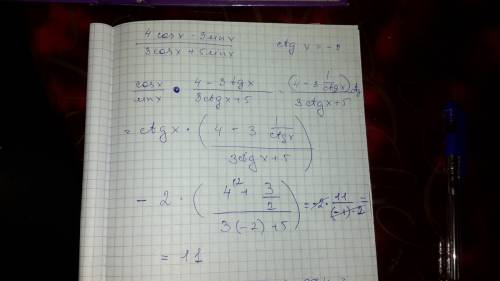 4 cosx - 3 sinx / 3 cosx + 5 sinx   ctg x = -2
cosx / sinx · 4 - 3 tgx / 3ctgx + 5 = (4 - 3 1/ctgx) ctg / 3ctgx + 5
= ctgx · ( 4 - 3 1/ctgx / 3ctgx + 5 )
- 2 · ( 4 + 3/2 / 3(-2) + 5 ) = -2 · 11 / (-1)·2 =
= 11